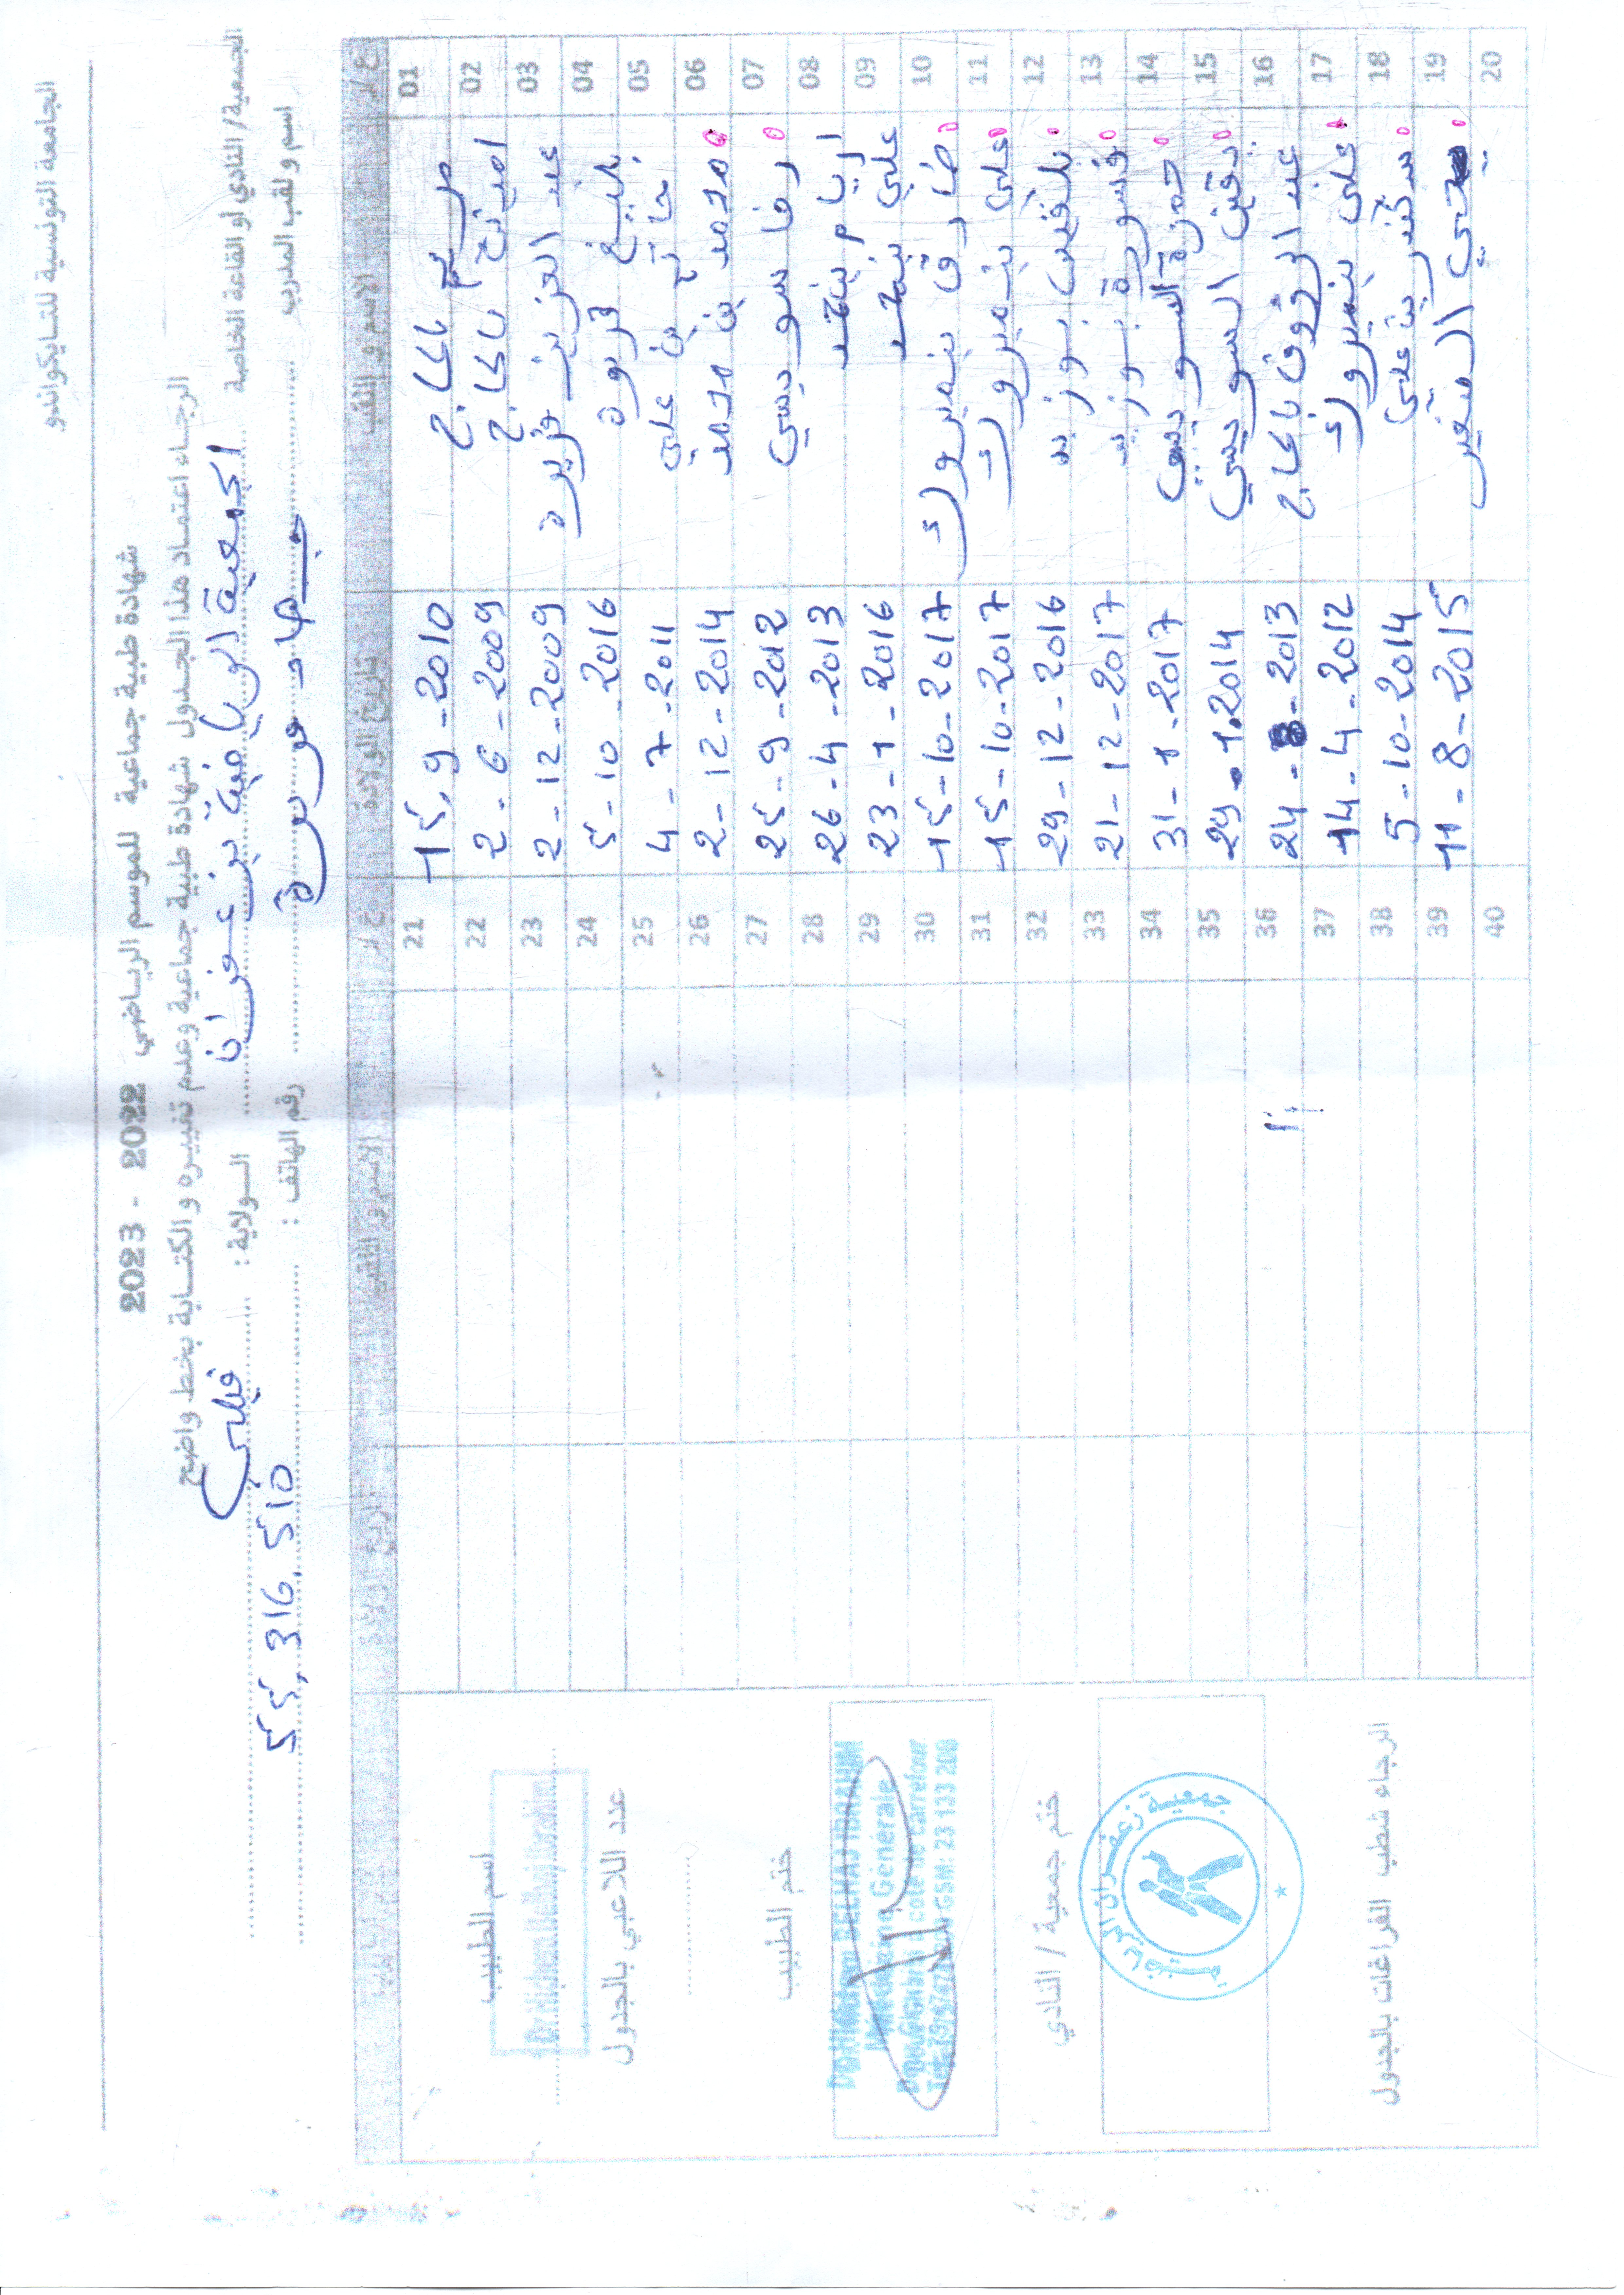 الجامعة التونسية للتايكواندو
شهادة طبية جماعية للموسم الرياضي 2022 - 2023
الرجاء اعتماد هذا الجدول شهادة طبية جماعية وعدم تغييره والكتابة بخط واضح
الجمعية/ النادي او القاعة الخاصة الجمعية الرياضية بزعفران الولاية : قبلي
اسم ولقب المدرب جهاد رقم الهاتف : 55.316.510
ع/ر الاسم و اللقب تاريخ الولادة ع/ر الاسم و اللقب
01 مريم بالحاج 15.9-2010 21
02 بالحاج 2-6-2009 22
03 عبد العزيز قريرة 2-12-2009 23
04 بليغ قريرة 5-10-2016 24
05 حاتم بن علي 4-7-2011 25
06 محمد بن محمد 2-12-2014 26
07 سويسي 25-9-2012 27
08 26-4-2013 28
09 علي 23-1-2016 29
10 بنمبروك 15-10-2017 30
11 علي بنمبروك 15-10-2017 31
12 بلقيس 29-12-2016 32
13 21-12-2017 33
14 حمزة السويسي 31-1-2017 34
15 السويسي 29-1.2014 35
16 عبد الرؤوف بالحاج 24-8-2013 36
17 علي بنمبروك 14-4-2012 37
18 بن علي 5-10-2014 38
19 11-8-2015 39
20 40
اسم الطبيب
Dr Hichem Belhaj Ibrahim
عدد اللاعبي بالجدول
ختم الطبيب
Dr Hichem BELHAJ IBRAHIM
Médecine Générale
GSM: 23 133 200
ختم جمعية / النادي
جمعية زعفران الرياضية
الرجاء شطب الفراغات بالجدول